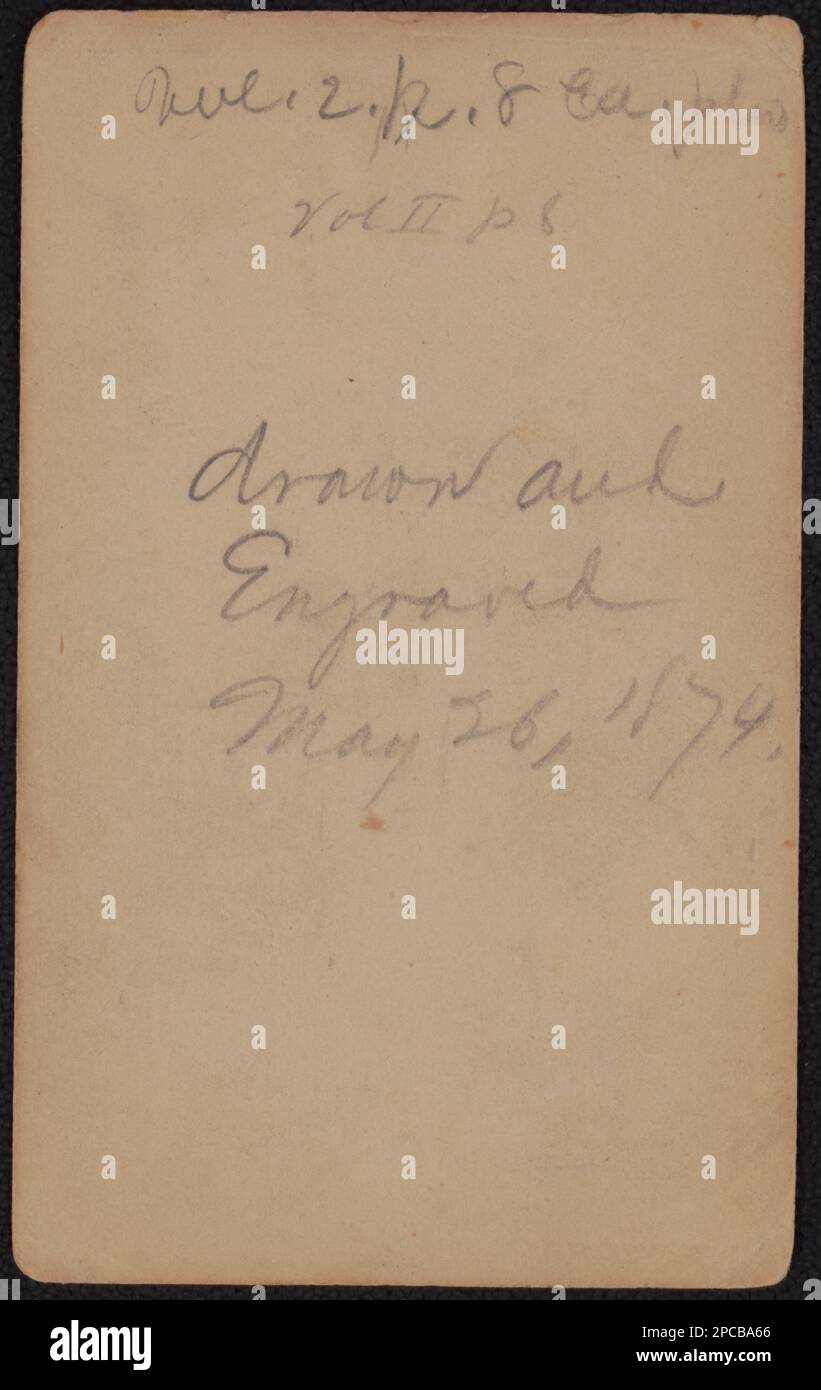 Vol. 2. p. 8 Ed.
Vol II p 6
drawn and
Engraved
May 26, 1874.
alamy
alamy
alamy
a
alamy
Image ID: 2PCBA66
www.alamy.com